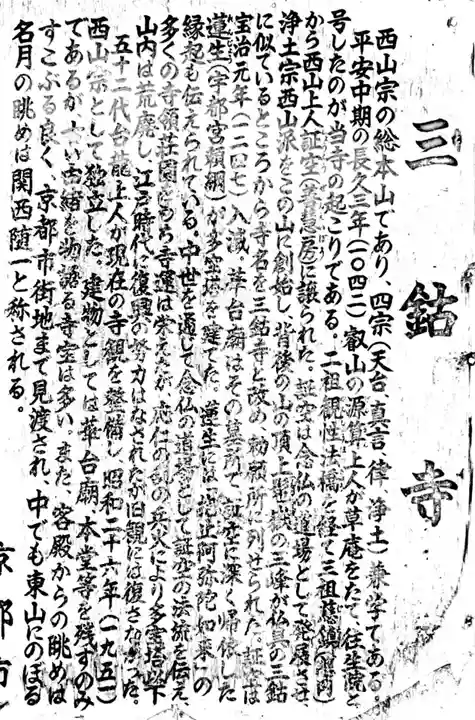 三鈷寺
西山宗の総本山であり、四宗(天台、真言、律、浄土)兼学である。
平安中期の長久三年(一〇四二)叡山の源算上人が草庵をたて、往生院と
号したのが当寺の起こりである。二祖観性法橋を経て三祖慈鎮
から西山上人証空(善慧房)に譲られた。証空は念仏の道場として発展させ
浄土宗西山派をこの山に創始し、背後の山の頂上 の三峰が仏具の三鈷
に似ているところから寺名を三鈷寺と改め、勅願所に列せられた。証空は
宝治元年(一二四七)入滅。華台廟はその墓所で、証空に深く帰依した
蓮生(宇都宮頼綱)が多宝塔を建てた。蓮生には 阿弥陀如来の
縁起も伝えられている。中世を通じて念仏の道場として証空の法流を伝え、
多くの寺領荘園をもち寺運は栄えたが、応仁の乱の兵火により多宝塔以下
山内は荒廃し、江戸時代に復興の努力はなされたが旧観には復さなかった。
五十二代台龍上人が現在の寺観を整備し、昭和二十六年(一九五一)
西山宗として独立した。建物としては華台廟、本堂等を残すのみ
であるが 由緒を物語る寺宝は多い。また、客殿からの眺めは
すこぶる良く、京都市街地まで見渡され、中でも東山にのぼる
名月の眺めは関西随一と称される。
京都市